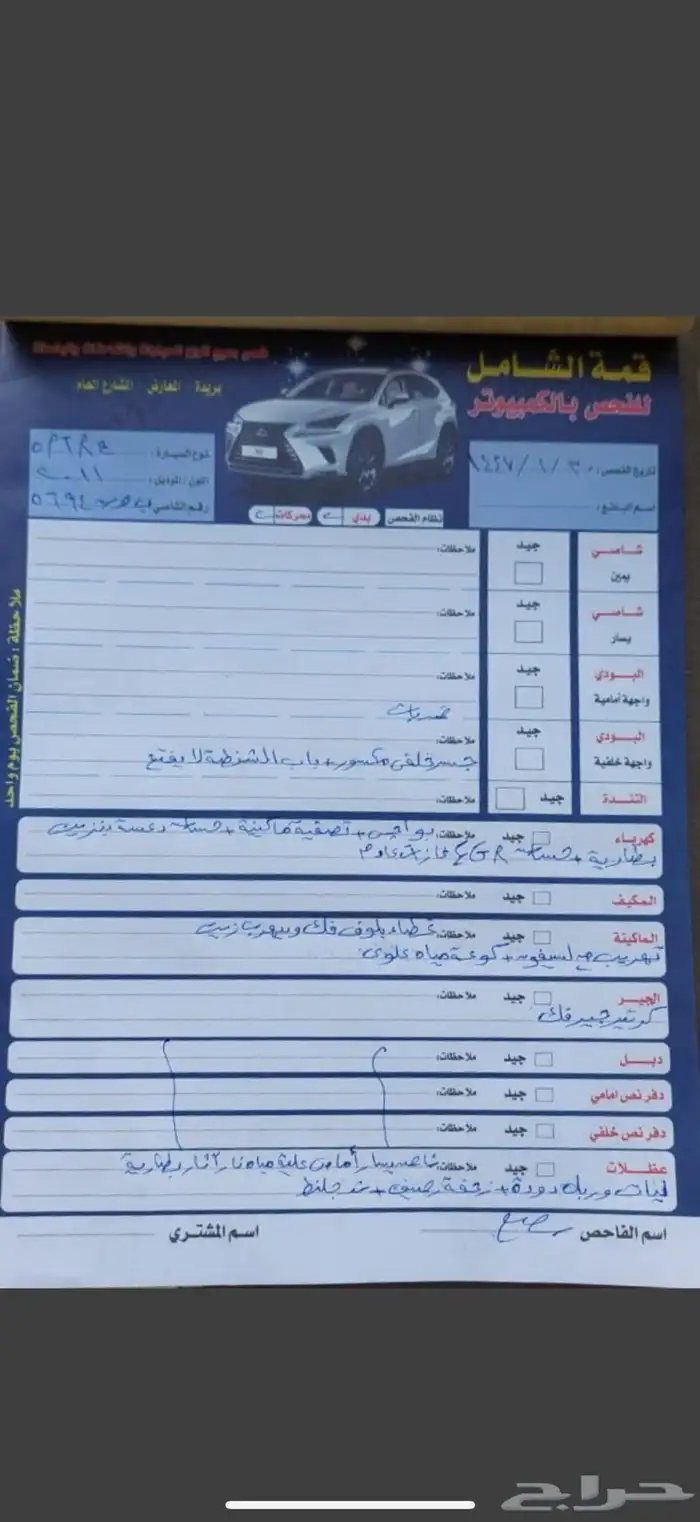 قمة الشامل
للفحص بالكمبيوتر
بريدة - المعارض - الشارع العام
تاريخ الفحص: ١٤٤٧/١/٣٠
اسم البائع:
نوع السيارة: OPTRA
اللون / الموديل: ٢٠١١
رقم الشاصي:
نظام الفحص
بدي
محركات
ملاحظة: ضمان الفحص يوم واحد
شاصي يمين جيد ملاحظات:
شاصي يسار جيد ملاحظات:
البودي واجهة أمامية جيد ملاحظات:
ضربات
البودي واجهة خلفية جيد ملاحظات:
جسر خلفي مكسور + باب الشنطة لا يفتح
التندة جيد ملاحظات:
كهرباء جيد ملاحظات: بواجي + تصفية ماكينة + حساس دعسة بنزين
بطارية + حساس EGR غازات عادم
المكيف جيد ملاحظات:
الماكينة جيد ملاحظات: غطاء بلوف فك ويهرب زيت
تهريب + كوعة مياه علوي
الجير جيد ملاحظات:
كرتير جير فك
دبل جيد ملاحظات:
دفر نص امامي جيد ملاحظات:
دفر نص خلفي جيد ملاحظات:
عضلات جيد ملاحظات: أمامي علبة مياه نار آثار بطارية
وربل دودة + زحفة + شد جلنط
اسم الفاحص
اسم المشتري
حراج